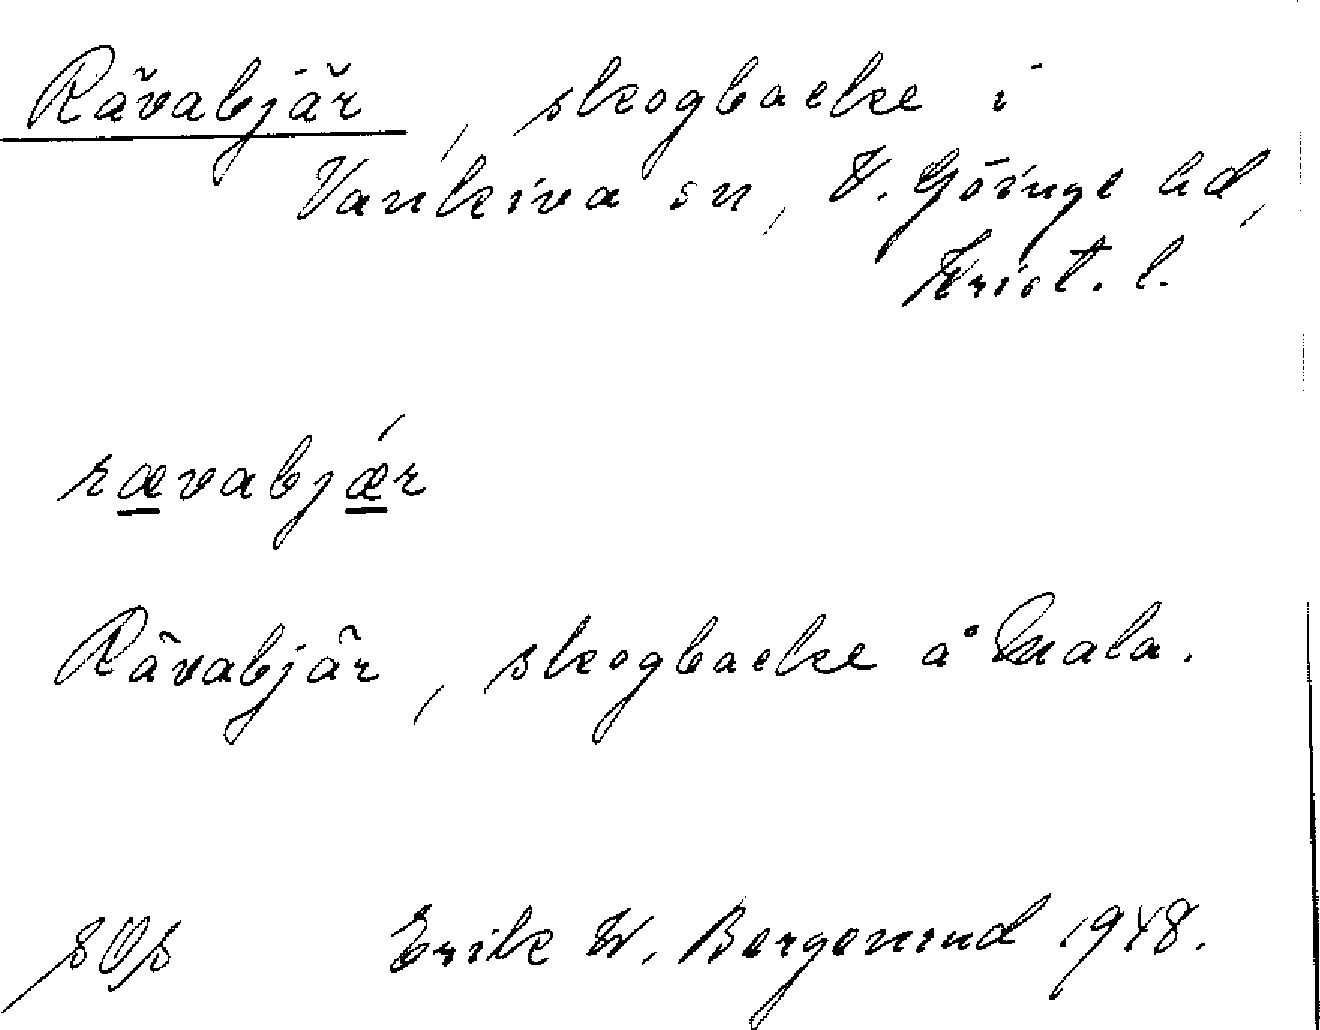 Rävabjär, skogbacke i
Vankiva sn, V. Göinge hd,
Krist. l.
rævabjǽr
Rävabjär, skogbacke å Mala.
Erik W. Bergenund 1948.